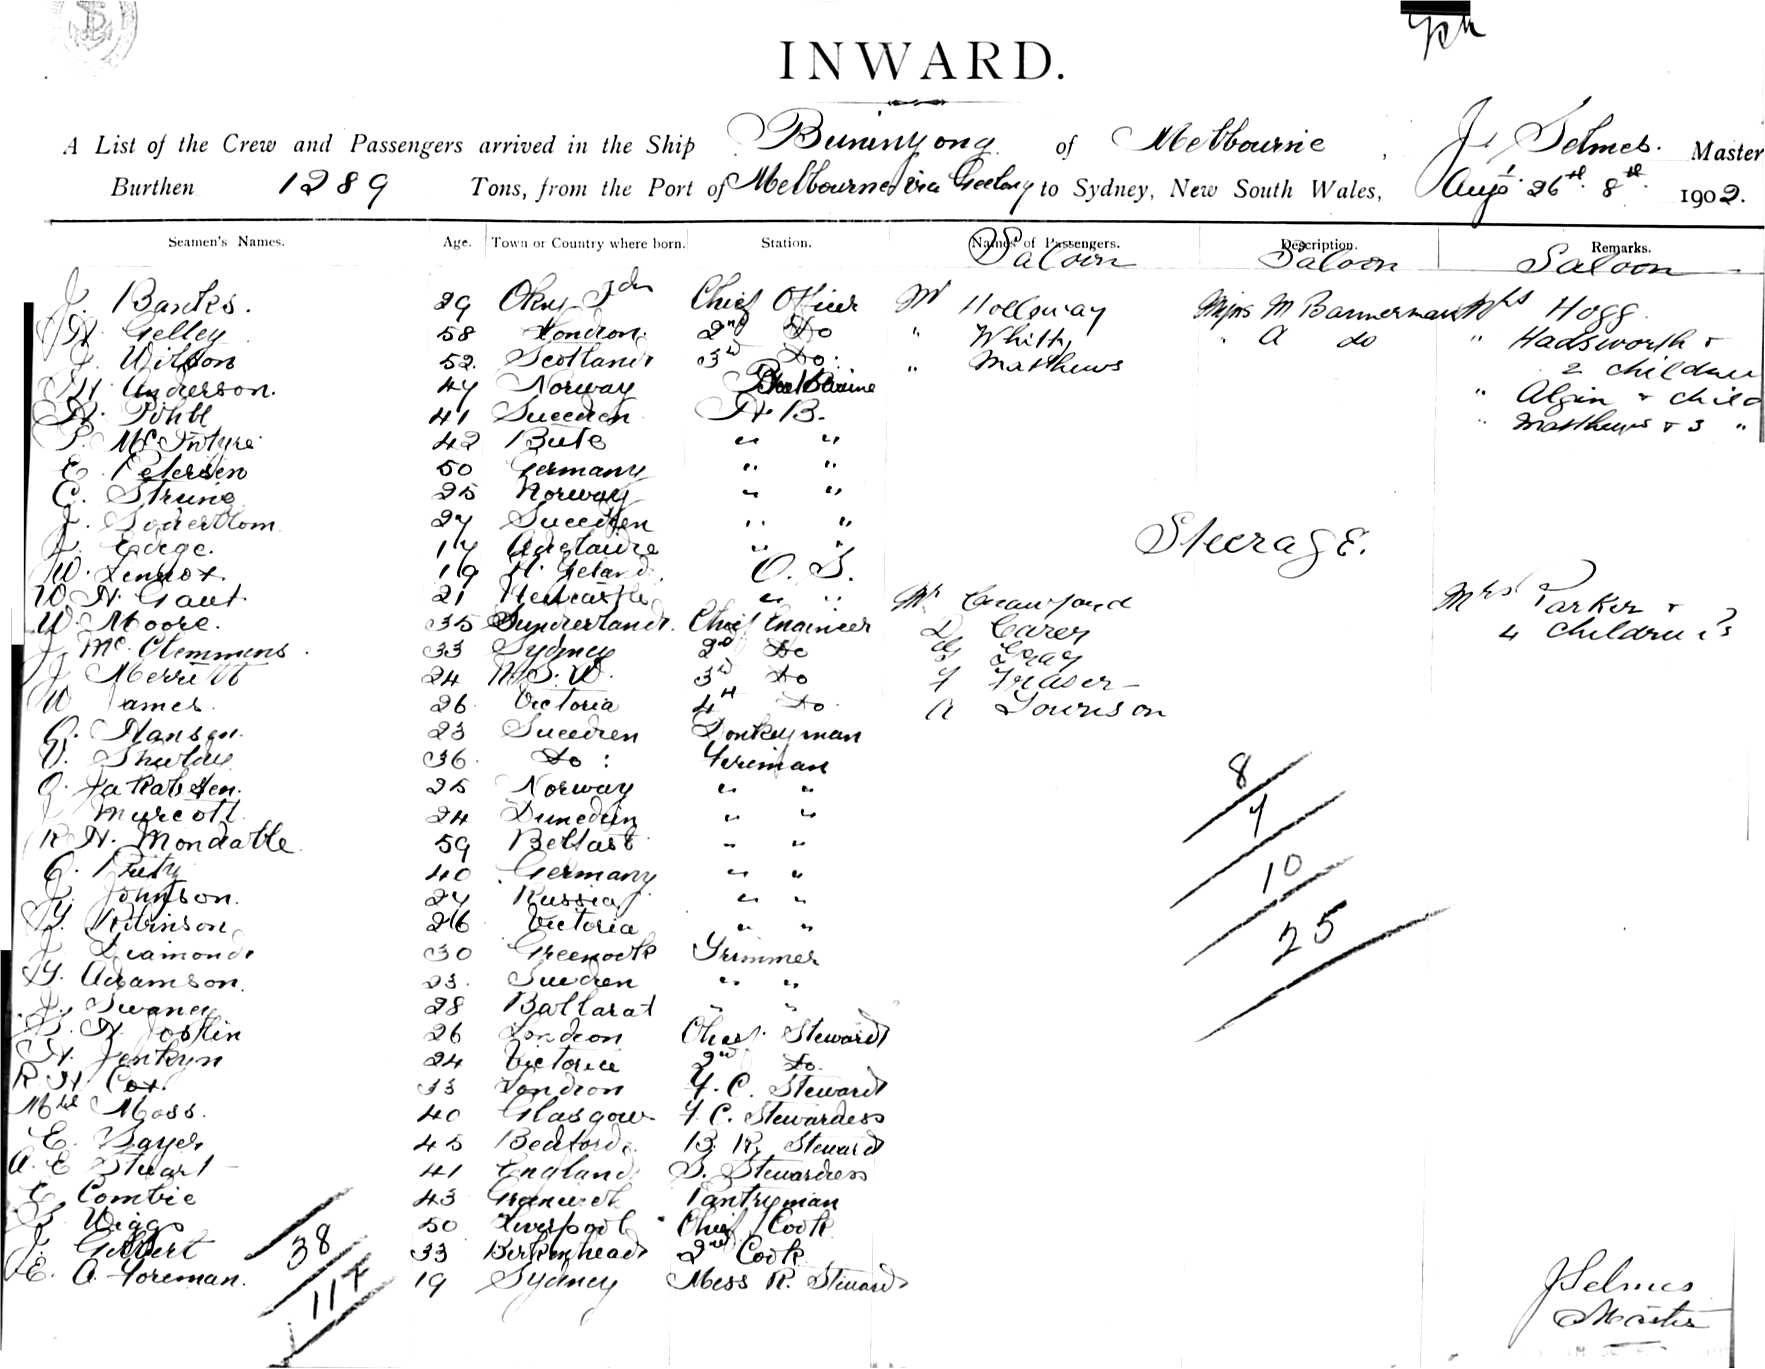 INWARD.
A List of the Crew and Passengers arrived in the Ship Buninyong of Melbourne, J. Selmes. Master
Burthen 1289 Tons, from the Port of Melbourne via Geelong to Sydney, New South Wales, Aug 26th 8th 1902.
Seamen's Names. Age. Town or Country where born. Station. Names of Passengers. Description. Remarks.
Saloon Saloon Saloon
J. Banks. 29 Chief Officer Mr Holloway Miss M Bannerman Mrs Hogg.
Gelley 58 London 2nd Do " Whitty " A do " Hadsworth +
J. Wilson 52. Scotland 3rd Do. " Matthews 2 children
Anderson. 47 Norway " Algin + child
41 Sweeden A. B. " Matthews + 3 "
P. McIntyre 42 Bute " "
E. Petersen 50 Germany " "
C. Strung 25 Norway " "
J. Soderblom 27 Sweeden " "
J. Edege. 17 Adelaide " "
W. Lennox. 19 N. Ireland. O. S.
Steerage.
W. H. Gaut. 21 Newcastle " " Mr Crawford Mrs Parker +
W. Moore. 35 Sunderland. Chief Engineer D Carey 4 children
J. McClemmens. 33 Sydney 2nd Do G Gray
J Merrett 24 N. S. W. 3rd Do F Fraser
W James. 26. Victoria 4th Do. A Townson
C. Hansen. 23 Sweeden Donkeyman
36. Do: Fireman
Jakobsen. 25 Norway " "
J Murcott. 24 Dunedin " "
R. H. Mondable 59 Belfast " "
40 Germany " "
J. Johnson. 27 Russia " "
Robinson. 26 Victoria " "
J Diamond 30 Greenock Trimmer
Adamson. 23. Sweden " "
J. Swaney 28 Ballarat " "
H. Joslin 26 London Chief Steward
H. Jenkyn 24 Victoria 2nd Do.
R H Cox. 33 London F. C. Steward
Mrs Moss. 40 Glasgow F. C. Stewardess
E. Sayer 45 Bedford. B. R. Steward
A. E Stewart 41 England S. Stewardess
E. Combie 43 Greenwich Pantryman
Wiggs 50 Liverpool Chief Cook
J. Gilbert 33 Birkenhead 2nd Cook
E. A. Foreman. 19 Sydney Mess R. Steward
8
7
10
25
38
117
J Selmes
Master